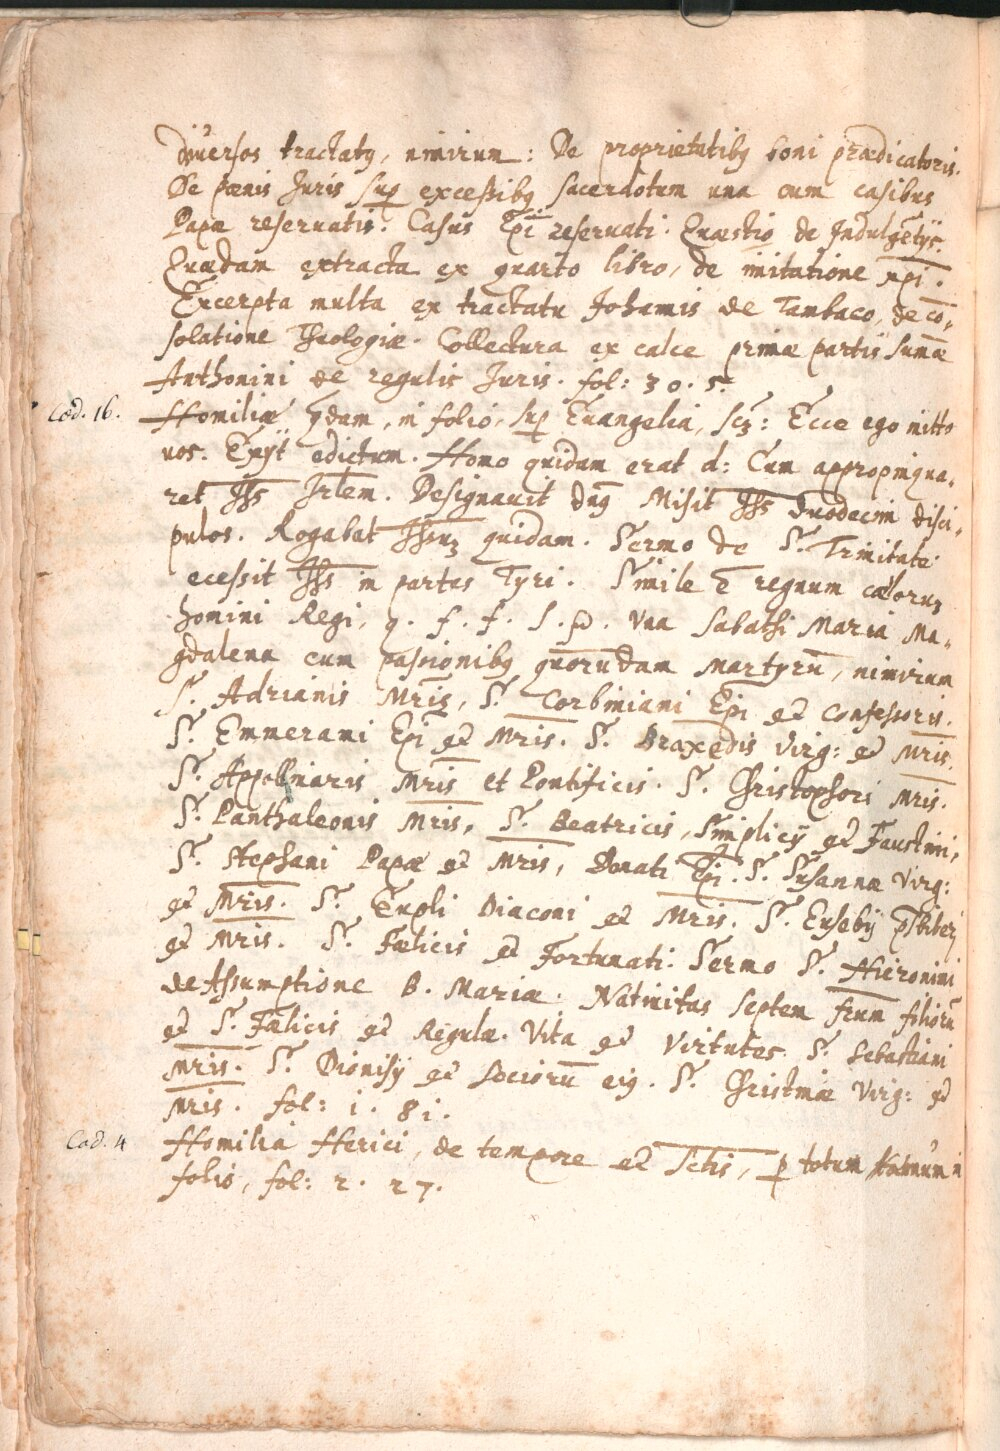 diuersos tractatꝰ, nimirum: De proprietatibꝫ boni prædicatoris.
De pœnis Juris sup excessibꝫ sacerdotum una cum casibus
Papæ reseruatis. Casus Epī reseruati. Quæstio de Indulgētijs.
Quædam extracta ex quarto libro, de imitatione xpī.
Excerpta multa ex tractatu Johannis de Tambaco, de cō,
solatione Theologiæ. Collectura ex calce primæ partis Sum̄æ
Anthonini de regulis Juris. fol: 30. 5.
Cod. 16. Homiliæ qdam, in folio, sup Euangelia, scꝫ: Ecce ego mitto
uos. Exijt edictum. Homo quidam erat d: Cum appropinqua,
ret Jhs Jrlem. Designauit dn̄s Misit Jhs duodecim disci,
pulos. Rogabat Jhsuꝫ quidam. Sermo de S. Trinitate
ecessit Jhs in partes Tyri. Simile ē regnum cæloruꝫ
homini Regi, q. f. f. s. Una sabathi Maria Ma,
gdalena cum passionibꝫ quorundam Martyrū, nimirum
S. Adrianis Mris, S. Corbiniani Epi et Confessoris.
S. Emmerami Epi et Mris. S. Braxedis virg: et Mris.
S. Appollinaris Mris et Pontificis. S. Christophori Mris.
S. Panthaleonis Mris, S. Beatricis, Simplicij et Faustini,
S. Stephani Papæ et Mris, Donati Epi. S. Susannæ virg:
et Mris. S. Eupli Diaconi et Mris. S. Eusebij pſbiteri
et Mris. S. Fælicis et Fortunati. Sermo S. Hieronimi
de Assumptione B. Mariæ. Natiuitas septem frum filiorū
et S. Fælicis et Regulæ. Vita et Virtutes S. Sebastiani
Mris. S. Dionisij et Sociorū eiꝰ. S. Christinæ Virg: et
Mris. fol: 1. 81.
Cod. 4 Homilia Herici, de tempore et Sctis, p totum Annum in
folio, fol: 2. 27.